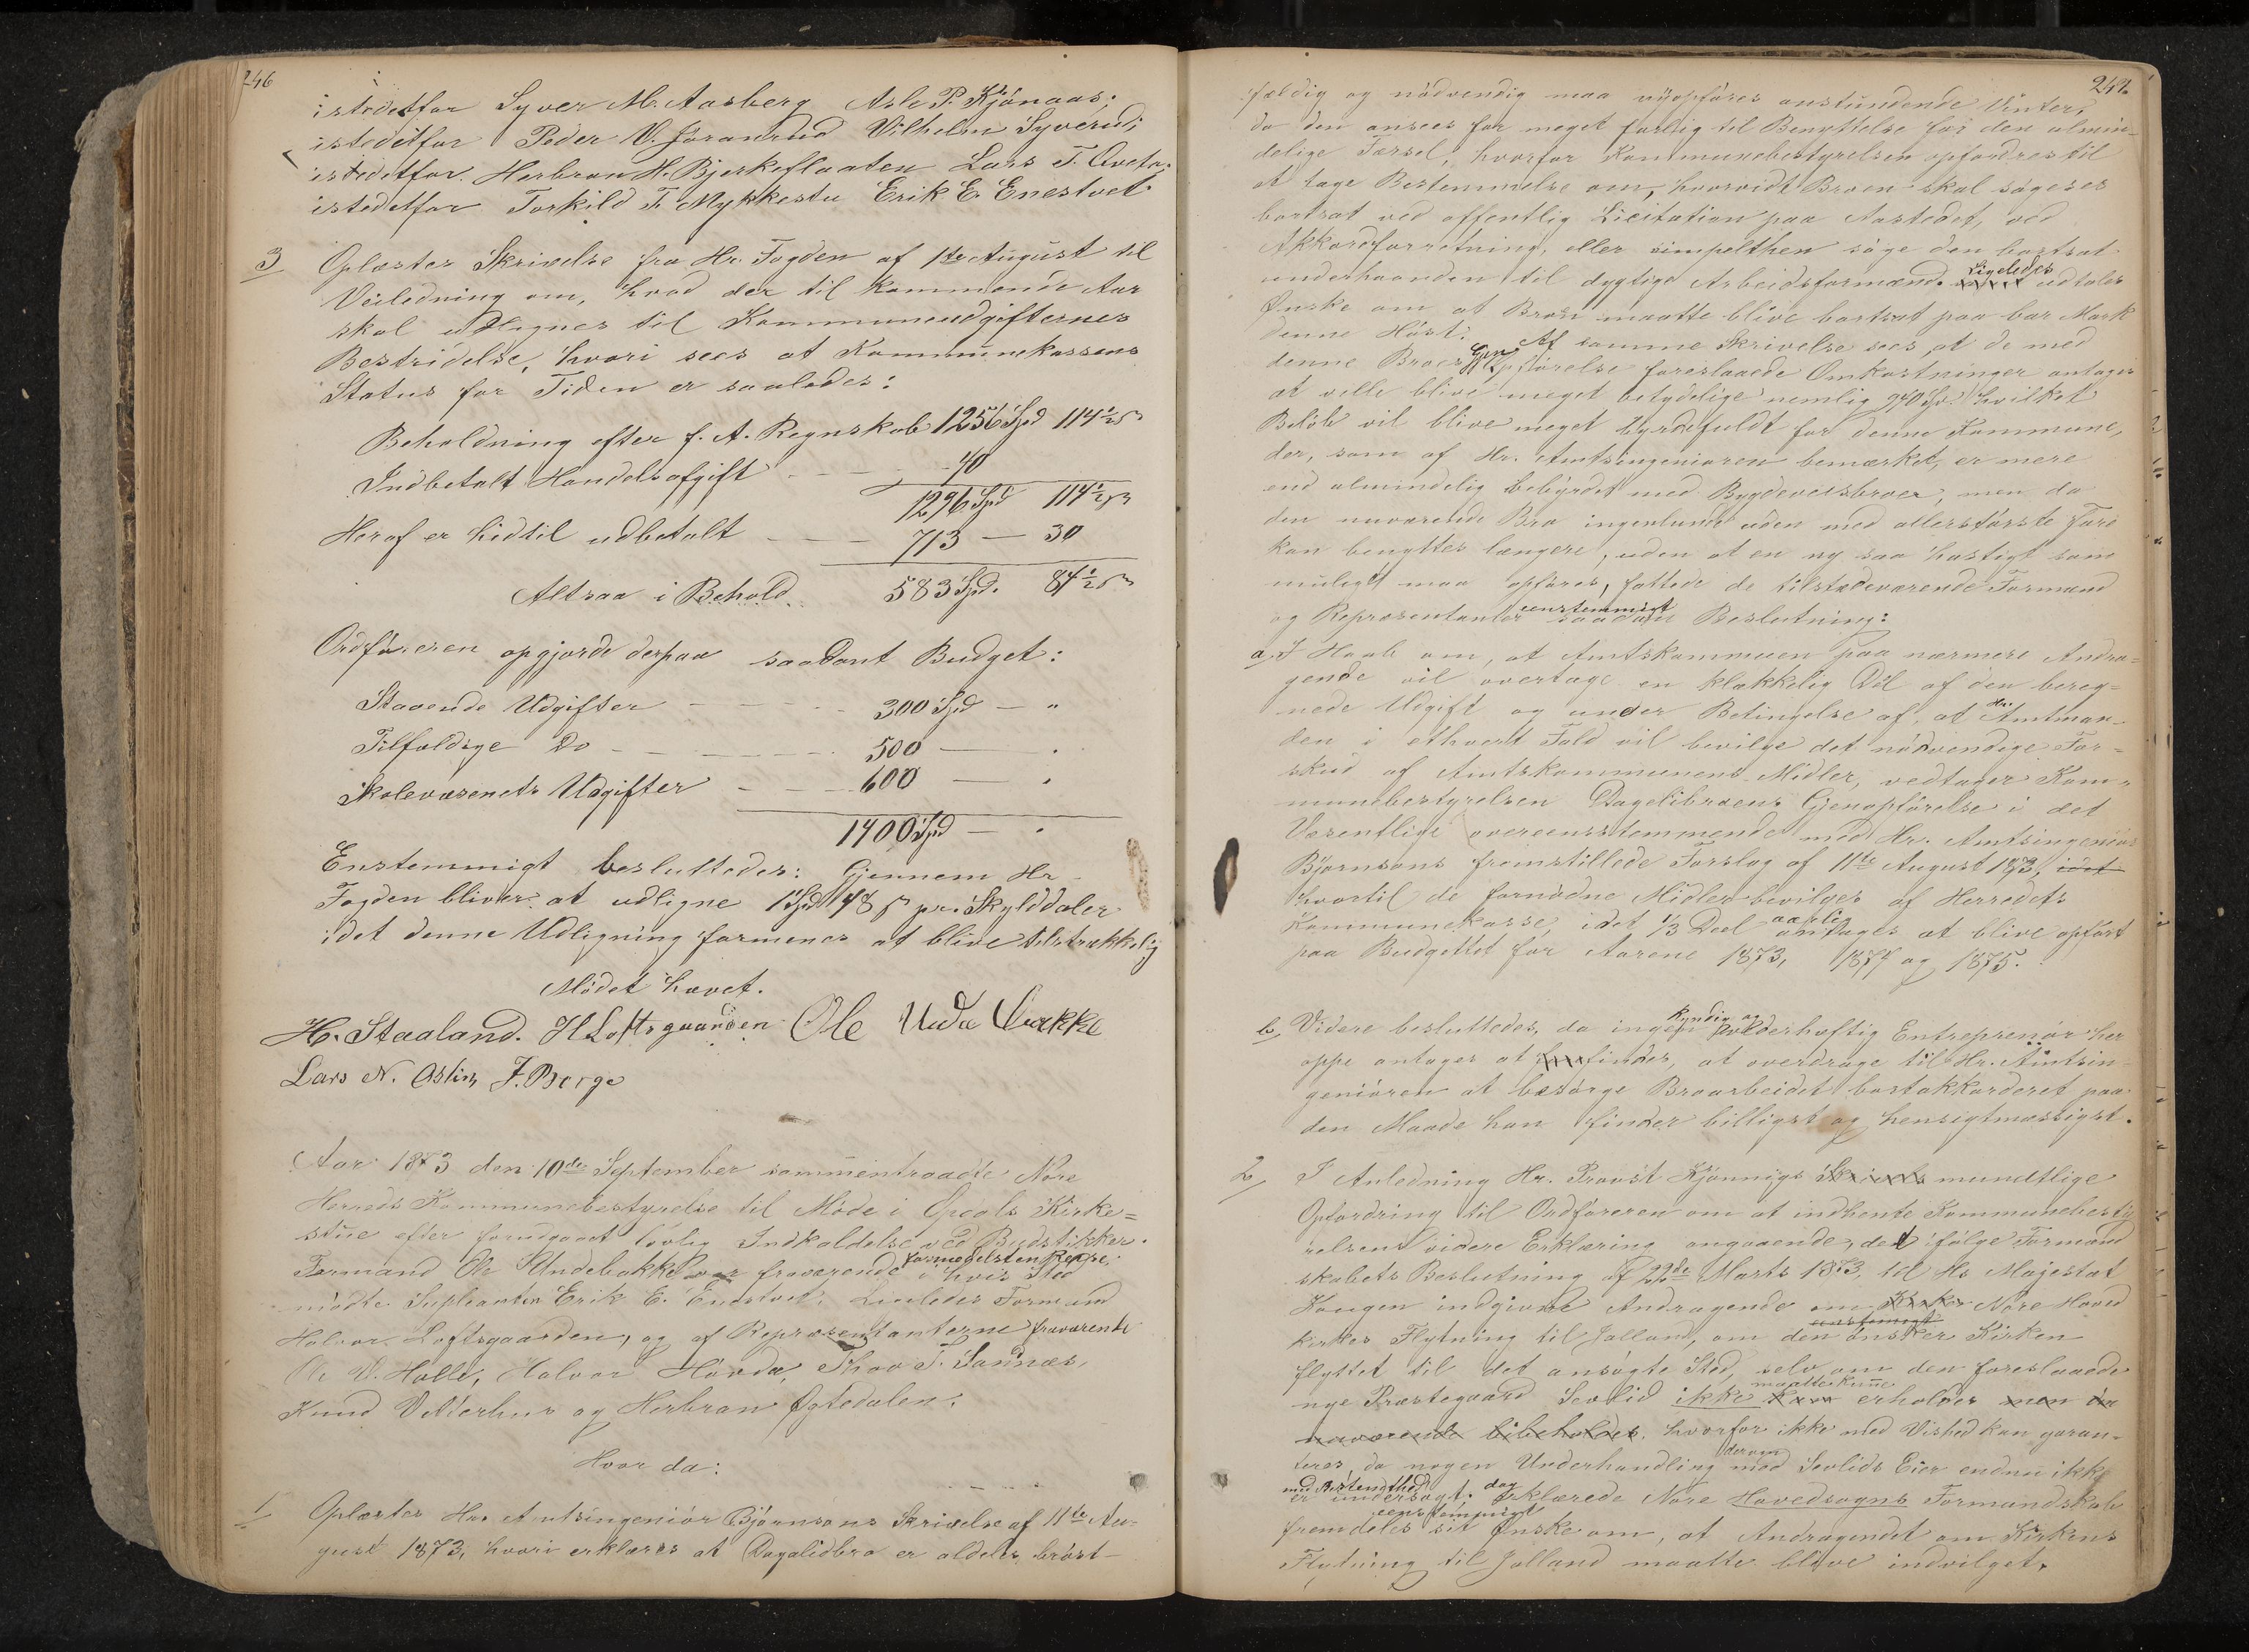 246
istedetfor Syver M. Aasberg Asle P. Kjönaas;
istedetfor Peder V. Jöranrud Vilhelm Syverud;
istedetfor Herbran H. Bjerkeflaaten Lars T. Qveto;
istedetfor Torkild T. Mykkestu Erik E. Enestvet
3 Oplæstes Skrivelse fra Hr. Fogden af 1ste August til
Veiledning om, hvad der til kommende Aar
skal udlignes til Kommuneudgifternes
Bestridelse, hvori sees at Kommunekassens
Status for Tiden er saaledes:
Beholdning efter f. A. Regnskab 1256 Spd 114½ s
Indbetalt Handelsafgift 40
1296 Spd 114½ s
Heraf er hidtil udbetalt 713 — 30
Altsaa i Behold 583 Spd. 84½ s
Ordföreren opgjorde derpaa saadant Budget:
Staaende Udgifter 300 Spd — "
Tilfældige Do 500 — "
Skolevæsenets Udgifter 600 — "
1400 Spd — "
Enstemmigt besluttedes: Gjennem Hr
Fogden bliver at udligne 1 Spd 48 s pr. Skylddaler
idet denne Udligning formenes at blive tilstrækkelig
Mödet hævet.
H. Staaland. H Loftsgaarden Ole Unde Bakke
Lars N. Aslin J. Borge
Aar 1873 den 10de September sammentraadte Nore
Herreds Kommunebestyrelse til Möde i Opdals Kirke=
stue efter forudgaaet lovlig Indkaldelse ved Budstikker.
Formand Ole Undebakke var fraværende formedelst en Reise, i hvis Sted
mödte Supleanten Erik E. Enestvet. Ligeledes Formand
Halvor Loftsgaarden, og af Repræsentanterne fraværende
Ole V. Halle, Halvor Hövda, Thov T. Sannæs,
Knud Vetterhus og Herbran Ögtedalen.
Hvor da:
1 Oplæstes Hr. Amtsingeniör Björnsons Skrivelse af 11te Au-
gust 1873, hvori erklæres at Dagalidbro er aldeles bröst-
247.
fældig og nödvendig maa nyopföres anstundende Vinter,
da den ansees for meget farlig til Benyttelse for den almin-
delige Færsel, hvorfor Kommunebestyrelsen opfordres til
at tage Bestemmelse om, hvorvidt Broen skal söges
bortsat ved offentlig Licitation paa Aastedet, ved
Akkordforretning, eller simpelthen söge den bortsat
underhaanden til dygtige Arbeidsformænd. Ligeledes udtales
Önske om at Broen maatte blive bortsat paa bar Mark
denne Höst. Af samme Skrivelse sees, at de med
denne Broes Gjenopförelse foreslaaede Omkostninger antages
at ville blive meget betydelige nemlig 940 Spd. hvilket
Belöb vil blive meget byrdefuldt for denne Kommune,
der, som af Hr. Amtsingeniören bemærket, er mere
end almindelig bebyrdet med Bygdeveisbroer, men da
den nuværende Bro ingenlunde uden med allerstörste Fare
kan benyttes længere, uden at en ny saa hastigt som
muligt maa opföres, fattede de tilstedeværende Formænd
og Repræsentanter eenstemmigt saadan Beslutning:
a, I Haab om, at Amtskommuen paa nærmere Andra=
gende vil overtage en klækkelig Del af den bereg=
nede Udgift og under Betingelse af, at Hr. Amtman-
den i ethvert Fald vil bevilge det nödvendige For=
skud af Amtskommunens Midler, vedtager Kom=
munebestyrelsen Dagalibroens Gjenopförelse i det
Væsentlige overeensstemmende med Hr. Amtsingeniör
Björnsons fremstillede Forslag af 11te August 1873, idet
hvortil de fornödne Midler bevilges af Herredets
Kommunekasse, idet 1/3 Deel aarlig antages at blive opfört
paa Budgettet for Aarene 1873, 1874 og 1875.
b, Videre besluttedes, da ingen kyndig og vederhæftig Entreprenör her
oppe antages at findes, at overdrage til Hr. Amtsin-
geniören at besörge Broarbeidet bortakkorderet paa
den Maade han finder billigst og hensigtmæssigst.
2, I Anledning Hr. Provst Kjönnigs mundtlige
Opfordring til Ordföreren om at indhente Kommunebesty
relsens videre Erklæring angaaende, det ifölge Formand
skabets Beslutning af 22de Marts 1873, til Hs Majestæt
Kongen indgivne Andragende om Nore Hoved
kirkes Flytning til Jalland, om den eenstemmigt önsker Kirken
flyttet til det ansögte Sted, selv om den foreslaaede
nye Præstegaard Sevlid ikke maatte kunne erholdes men da
nuværende bibeholdes. hvorfor ikke med Vished kan garan-
teres, da nogen Underhandling derom med Sevlids Eier endnu ikke
med Bestemthed er undersögt. dog erklærede Nore Hovedsogns Formandskab
fremdeles eenstemmigt sit Önske om, at Andragendet om Kirkens
Flytning til Jalland maatte blive indvilget.